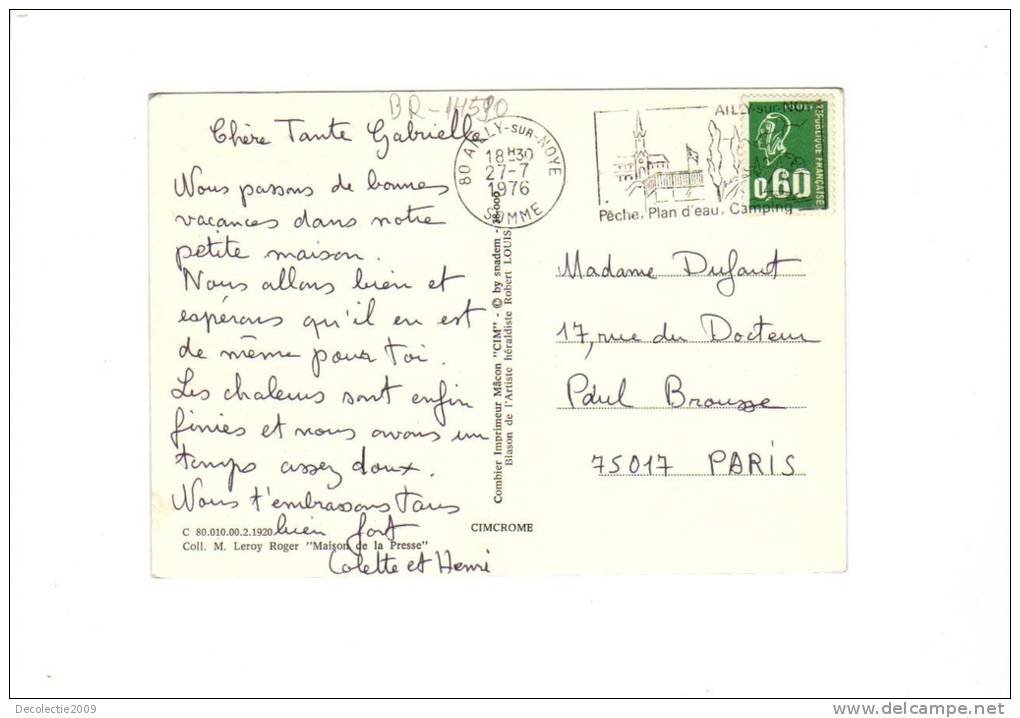 BR-14590
Chère Tante Gabrielle
Nous passons de bonnes
vacances dans notre
petite maison.
Nous allons bien et
espérons qu'il en est
de même pour toi.
Les chaleurs sont enfin
finies et nous avons un
temps assez doux.
Nous t'embrassons Tous
bien fort
Colette et Henri
C 80.010.00.2.1920
Coll. M. Leroy Roger "Maison de la Presse"
Combier Imprimeur Mâcon "CIM" - © by spadem - 38.000
Blason de l'Artiste héraldiste Robert LOUIS
CIMCROME
80 AILLY-SUR-NOYE
18H30
27-7
1976
SOMME
AILLY-sur-NOYE
Pêche, Plan d'eau, Camping
0,60
REPUBLIQUE FRANÇAISE
Madame Dufaut
17, rue du Docteur
Paul Brousse
75017 PARIS
Decolectie2009
www.delcampe.net